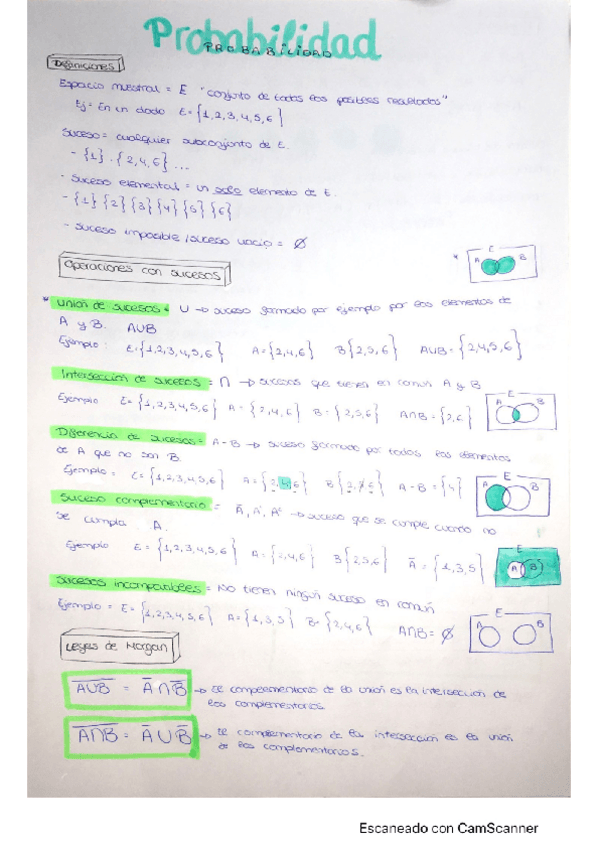 Probabilidad
PROBABILIDAD
Definiciones
Espacio muestral = E "conjunto de todos los posibles resultados"
Ej = En un dado E={1,2,3,4,5,6}
Suceso = cualquier subconjunto de E.
- {1} · {2,4,6} ...
- Suceso elemental = un solo elemento de E.
- {1} {2} {3} {4} {5} {6}
- Suceso imposible / suceso vacio = Ø
Operaciones con sucesos
E
A B
* Union de sucesos = U → suceso formado por ejemplo por los elementos de
A y B. A∪B
Ejemplo: E={1,2,3,4,5,6} A={2,4,6} B{2,5,6} A∪B={2,4,5,6}
Intersección de sucesos = ∩ → sucesos que tienen en comun A y B
Ejemplo E={1,2,3,4,5,6} A={2,4,6} B={2,5,6} A∩B={2,6}
E
A B
Diferencia de sucesos = A-B → suceso formado por todos los elementos
de A que no son B
Ejemplo = E={1,2,3,4,5,6} A={2,4,6} B{2,5,6} A-B={4}
E
A B
Suceso complementario = Ā, A', Aᶜ → suceso que se cumple cuando no
se cumpla A.
Ejemplo E={1,2,3,4,5,6} A={2,4,6} B{2,5,6} Ā={1,3,5}
E
A B
Sucesos incompatibles = No tienen ningún suceso en común
Ejemplo = E={1,2,3,4,5,6} A={1,3,5} B={2,4,6} A∩B=Ø
E
A B
Leyes de Morgan
A̅∪̅B̅ = Ā∩B̅ → El complementario de la unión es la intersección de
los complementarios.
A̅∩̅B̅ = Ā∪B̅ → El complementario de la intersección es la unión
de los complementarios.
Escaneado con CamScanner